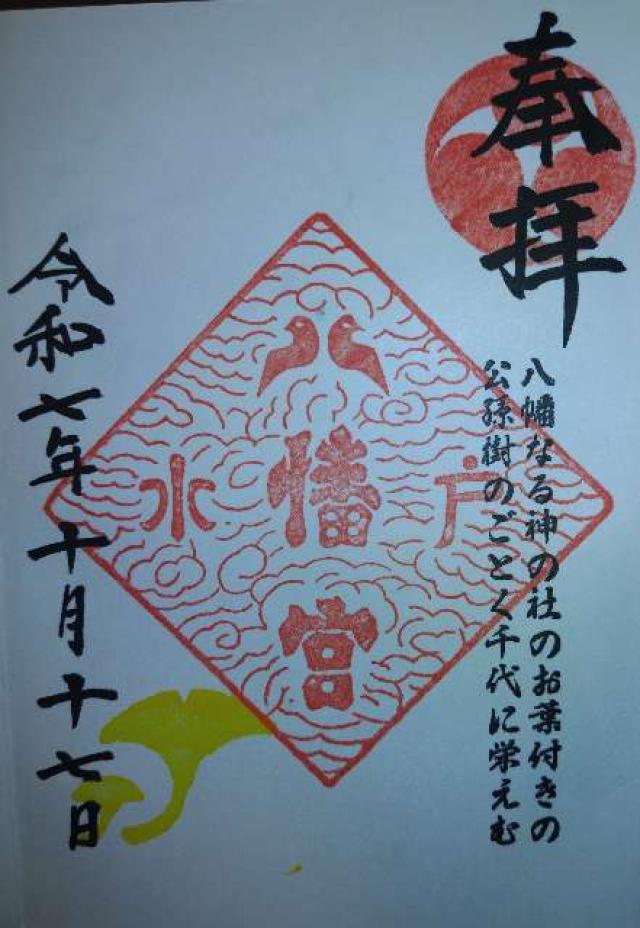 奉拝
八幡なる神の社のお葉付きの
公孫樹のごとく千代に栄えむ
水戸
八幡宮
令和七年十月十七日